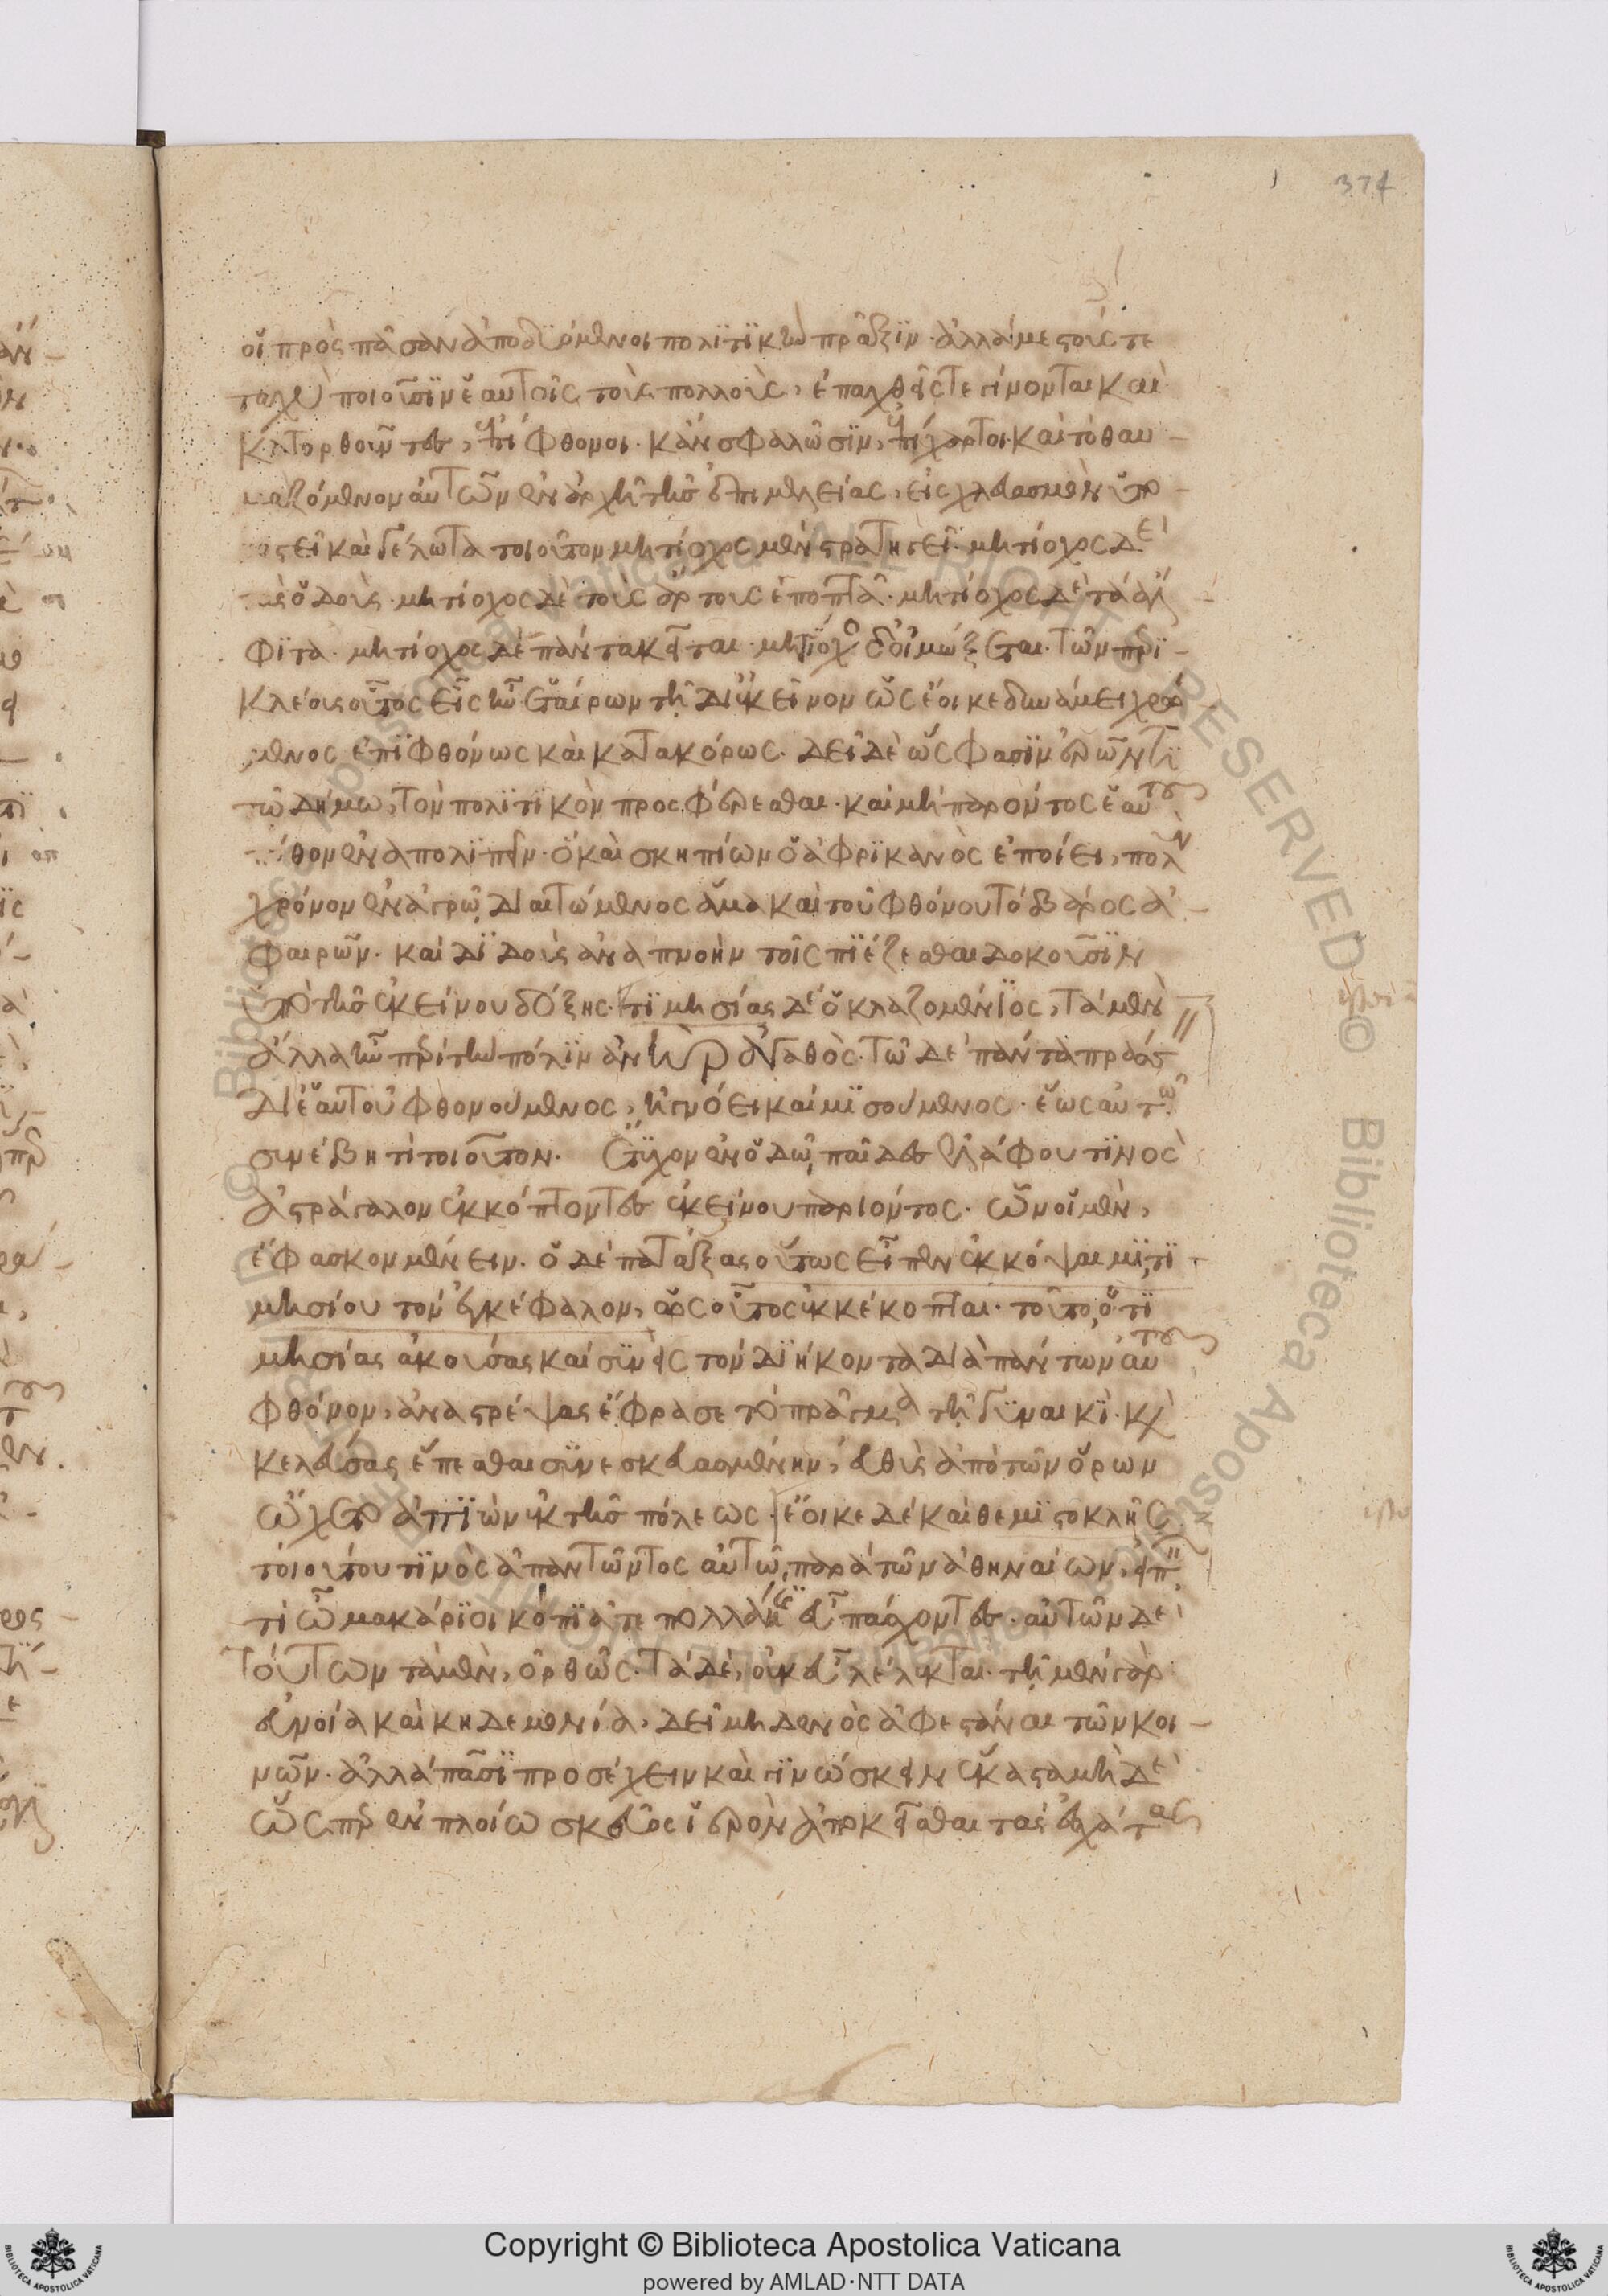 374
οἱ πρὸς πᾶσαν ἀποδυόμενοι πολιτικὴν πρᾶξιν· ἀλλὰ μεστούς τε
ταχὺ ποιοῦσιν ἑαυτοῖς τοὺς πολλοὺς, ἐπαχθεῖς τε γίνονται καὶ
κατορθοῦντες, ἐπίφθονοι· κἂν σφαλῶσιν, ἐπίχαρτοι· καὶ τὸ θαυ-
μαζόμενον αὐτῶν ἐν ἀρχῇ τῆς ἐπιμελείας, εἰς χλευασμὸν ὑπο-
νοστεῖ καὶ γέλωτα τοιοῦτον μητίοχος μὲν στρατηγεῖ· μητίοχος δὲ
τὰς ὁδοὺς· μητίοχος δὲ τοὺς ἄρτους ἐποπτᾶ· μητίοχος δὲ τὰ ἄλ
φιτα· μητίοχος δὲ πάντα κεῖται· μητίοχος δ' οἰμώξεται· τῶν περι-
κλέους οὗτος εἷς ἦν ἑταίρων τῇ δι' ἐκεῖνον ὡς ἔοικε δυνάμει χρώ
μενος ἐπιφθόνως καὶ κατακόρως· δεῖ δὲ ὥς φασιν ἐρῶντι
τῶ δήμω, τὸν πολιτικὸν προσφέρεσθαι· καὶ μὴ παρόντος ἑαυτοῦ
πόθον ἐναπολιπεῖν· ὃ καὶ σκηπίων ὁ ἀφρικανὸς ἐποίει, πολὺν
χρόνον ἐν ἀγρῶ, διαιτώμενος ἅμα καὶ τοῦ φθόνου τὸ βάρος ἀ-
φαιρῶν· καὶ διδοὺς ἀναπνοὴν τοῖς πιέζεσθαι δοκοῦσιν
ὑπὸ τῆς ἐκείνου δόξης· τιμησίας δὲ ὁ κλαζομένιος, τὰ μὲν
ἄλλα ἦν περὶ τὴν πόλιν ἀνὴρ ἀγαθὸς· τῶ δὲ πάντα πράσσειν
δι' ἑαυτοῦ φθονούμενος, ἠγνόει καὶ μισούμενος· ἕως αὐτῶ
συνέβη τι τοιοῦτον· ἔτυχον ἐν ὁδῶ, παῖδες ἐκ λάφου τινὸς
ἀστράγαλον ἐκκόπτοντες ἐκείνου παριόντος· ὧν οἱ μὲν,
ἔφασκον μένειν· ὁ δὲ πατάξας οὕτως εἶπεν ἐκκόψαιμι τι
μησίου τὸν ἐγκέφαλον, ὡς οὗτος ἐκκέκοπται· τοῦτο, ὁ τι
μησίας ἀκούσας καὶ συνεὶς τὸν διήκοντα διὰ πάντων αὐτοῦ
φθόνον, ἀναστρέψας ἔφρασε τὸ πρᾶγμα τῇ γυναικὶ· καὶ
κελεύσας ἕπεσθαι συνεσκευασμένην, εὐθὺς ἀπὸ τῶν θυρῶν
ὤχετο ἀπιὼν ἐκ τῆς πόλεως· ἔοικε δὲ καὶ θεμιστοκλῆς
τοιούτου τινὸς ἀπαντῶντος αὐτῶ, παρὰ τῶν ἀθηναίων, εἰπεῖν
τί ὦ μακάριοι κοπιᾶτε πολλάκις εὖ πάσχοντες· αὐτῶν δὲ
τούτων τὰ μὲν, ὀρθῶς· τὰ δὲ, οὐκ εὖ λέλεκται· τῇ μὲν γὰρ
εὐνοία καὶ κηδεμονία, δεῖ μηδενὸς ἀφεστάναι τῶν κοι-
νῶν· ἀλλὰ πᾶσι προσέχειν καὶ γινώσκειν ἕκαστα μὴ δὲ
ὥσπερ ἐν πλοίω σκεῦος ἱερὸν ἀποκεῖσθαι τὰς ἐσχάτας